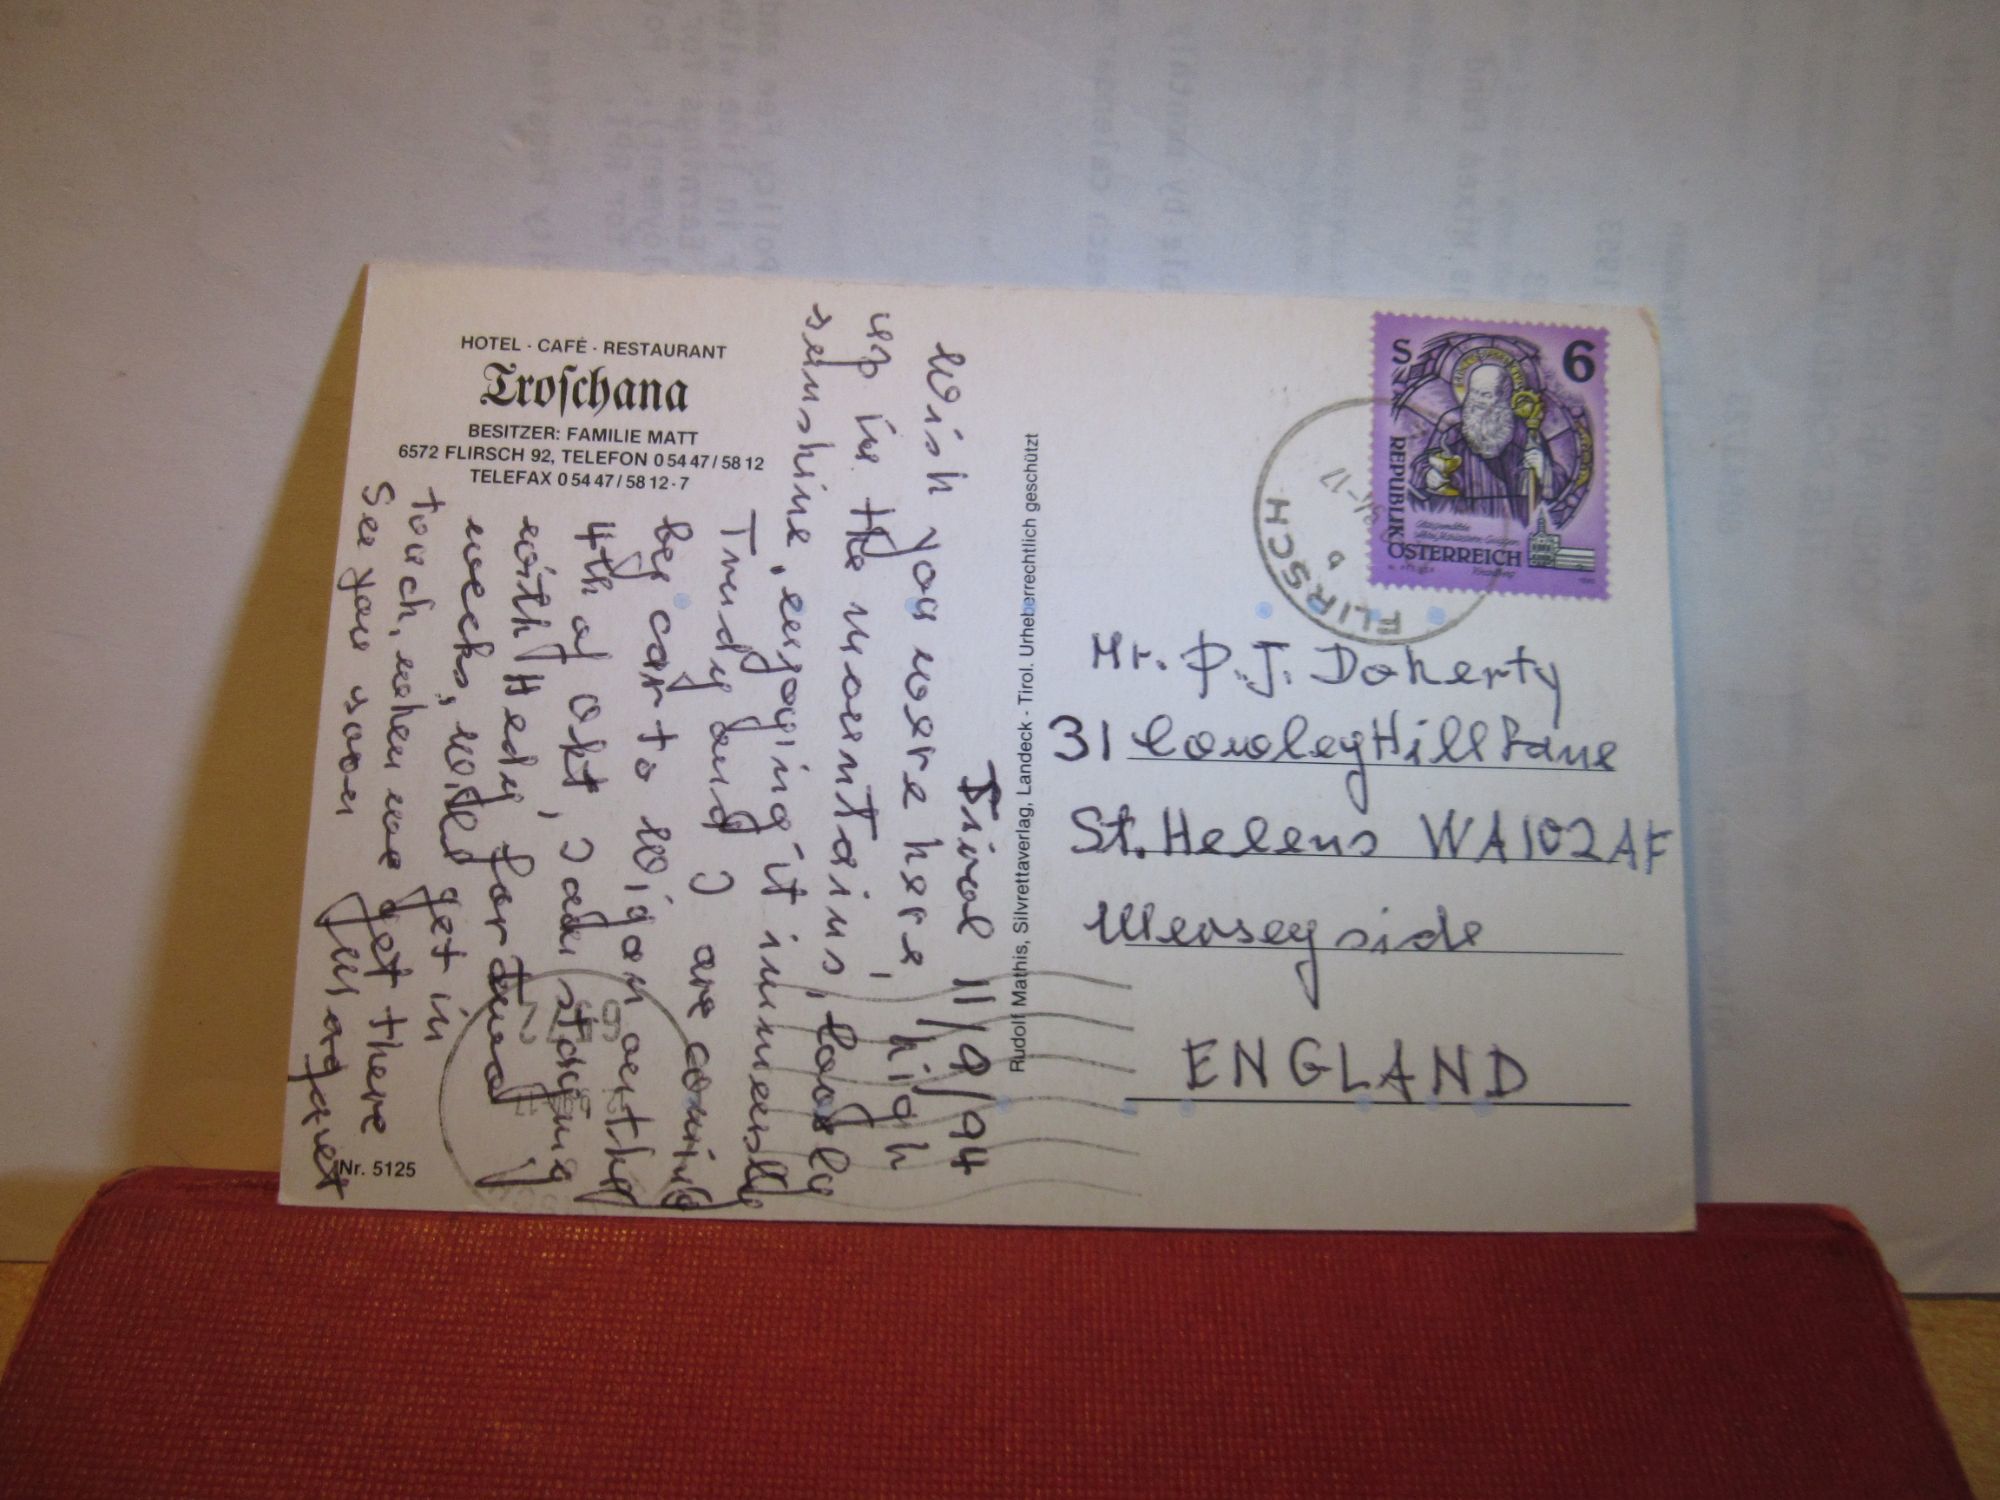 HOTEL · CAFÉ · RESTAURANT
Troschana
BESITZER: FAMILIE MATT
6572 FLIRSCH 92, TELEFON 0 54 47 / 58 12
TELEFAX 0 54 47 / 58 12 - 7
Tirol 11/9/94
Wish you were here, high
up in the mountains, lovely
sunshine, enjoying it immensly
Trudy and I are coming
by car to Wigan on the
4th of Okt, I am staying
with Hedy for two
weeks, Will get in
touch, when we get there
See you soon Margaret
Nr. 5125
Rudolf Mathis, Silvrettaverlag, Landeck - Tirol. Urheberrechtlich geschützt
S 6
REPUBLIK
ÖSTERREICH
FLIRSCH
Mr. P.J. Doherty
31 Cowley Hill Lane
St. Helens WA102AF
Merseyside
ENGLAND